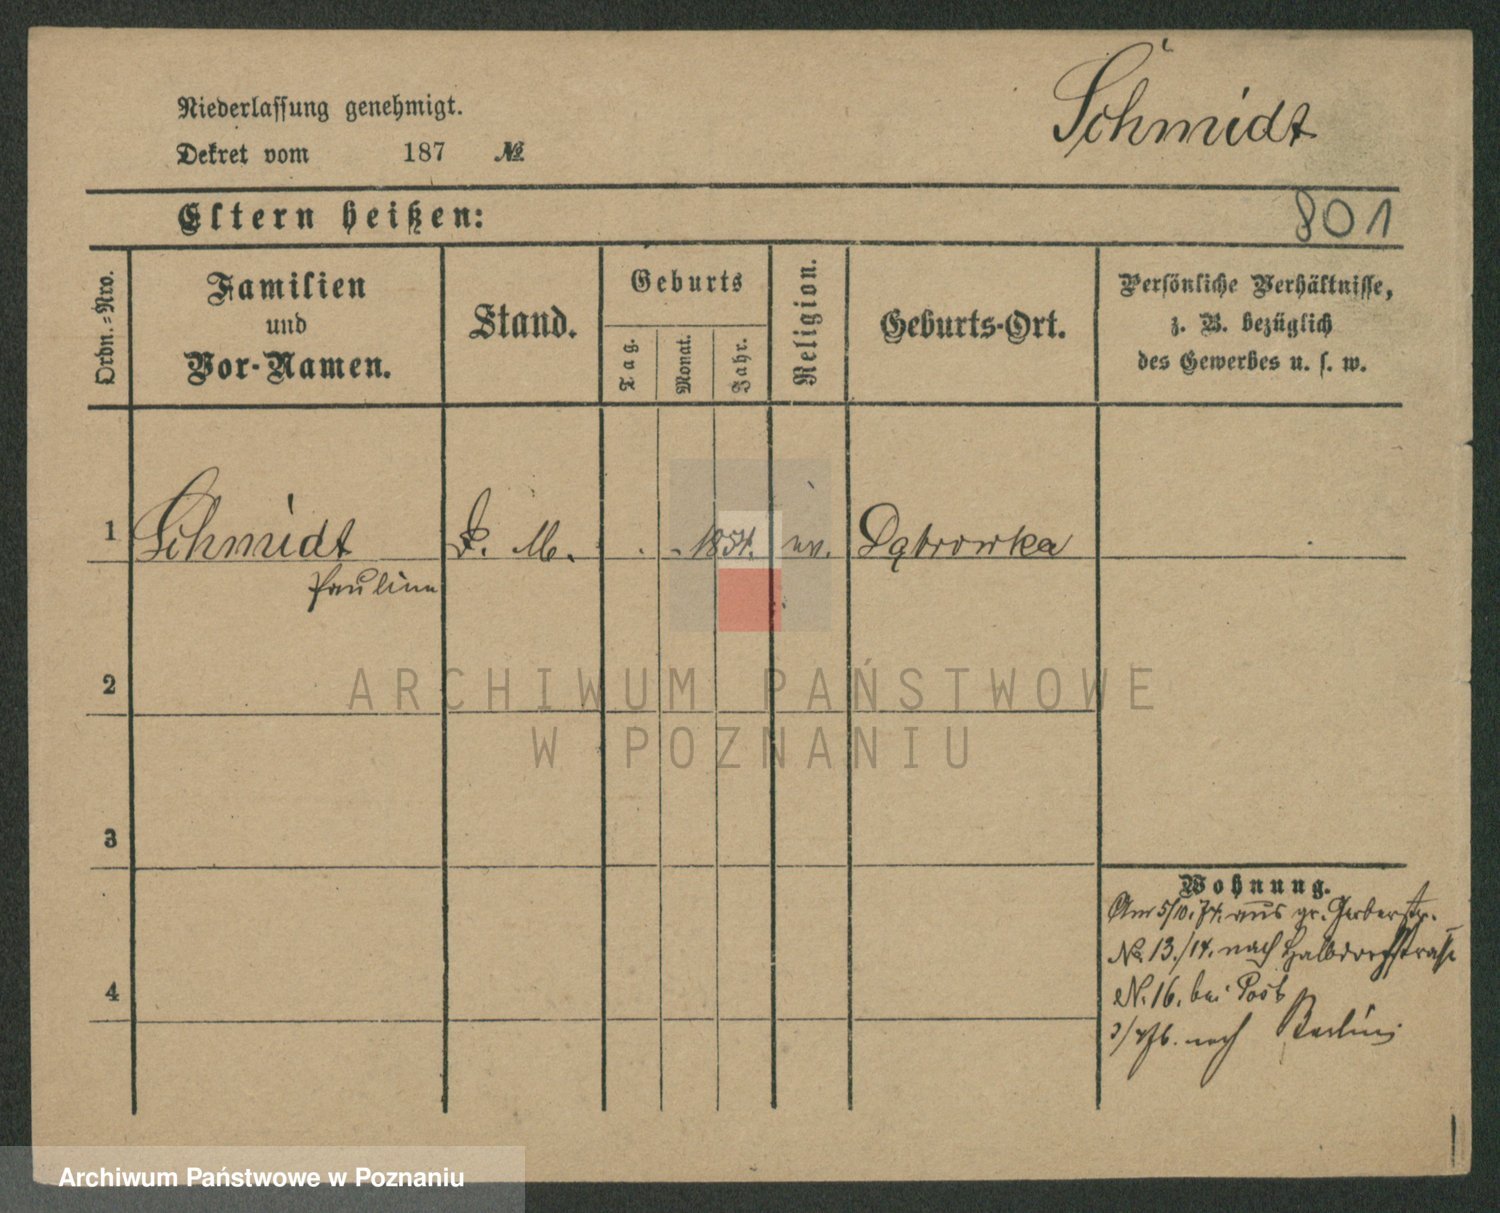 Schmidt
Niederlassung genehmigt.
Dekret vom 187 №
Eltern heißen:
801
Ordn.-Nro.
Familien
und
Vor-Namen.
Stand.
Geburts
Tag.
Monat.
Jahr.
Religion.
Geburts-Ort.
Persönliche Verhältnisse,
z. B. bezüglich
des Gewerbes u. s. w.
1 Schmidt D. M. . - 1854. ev. Dąbrowka
Pauline
2
ARCHIWUM PAŃSTWOWE
W POZNANIU
3
Wohnung.
Am 5/10. 74. aus gr. Gerberstr.
No. 13./14. nach Halbdorfstraße
4
N. 16. bei Post
nach Berlin
Archiwum Państwowe w Poznaniu